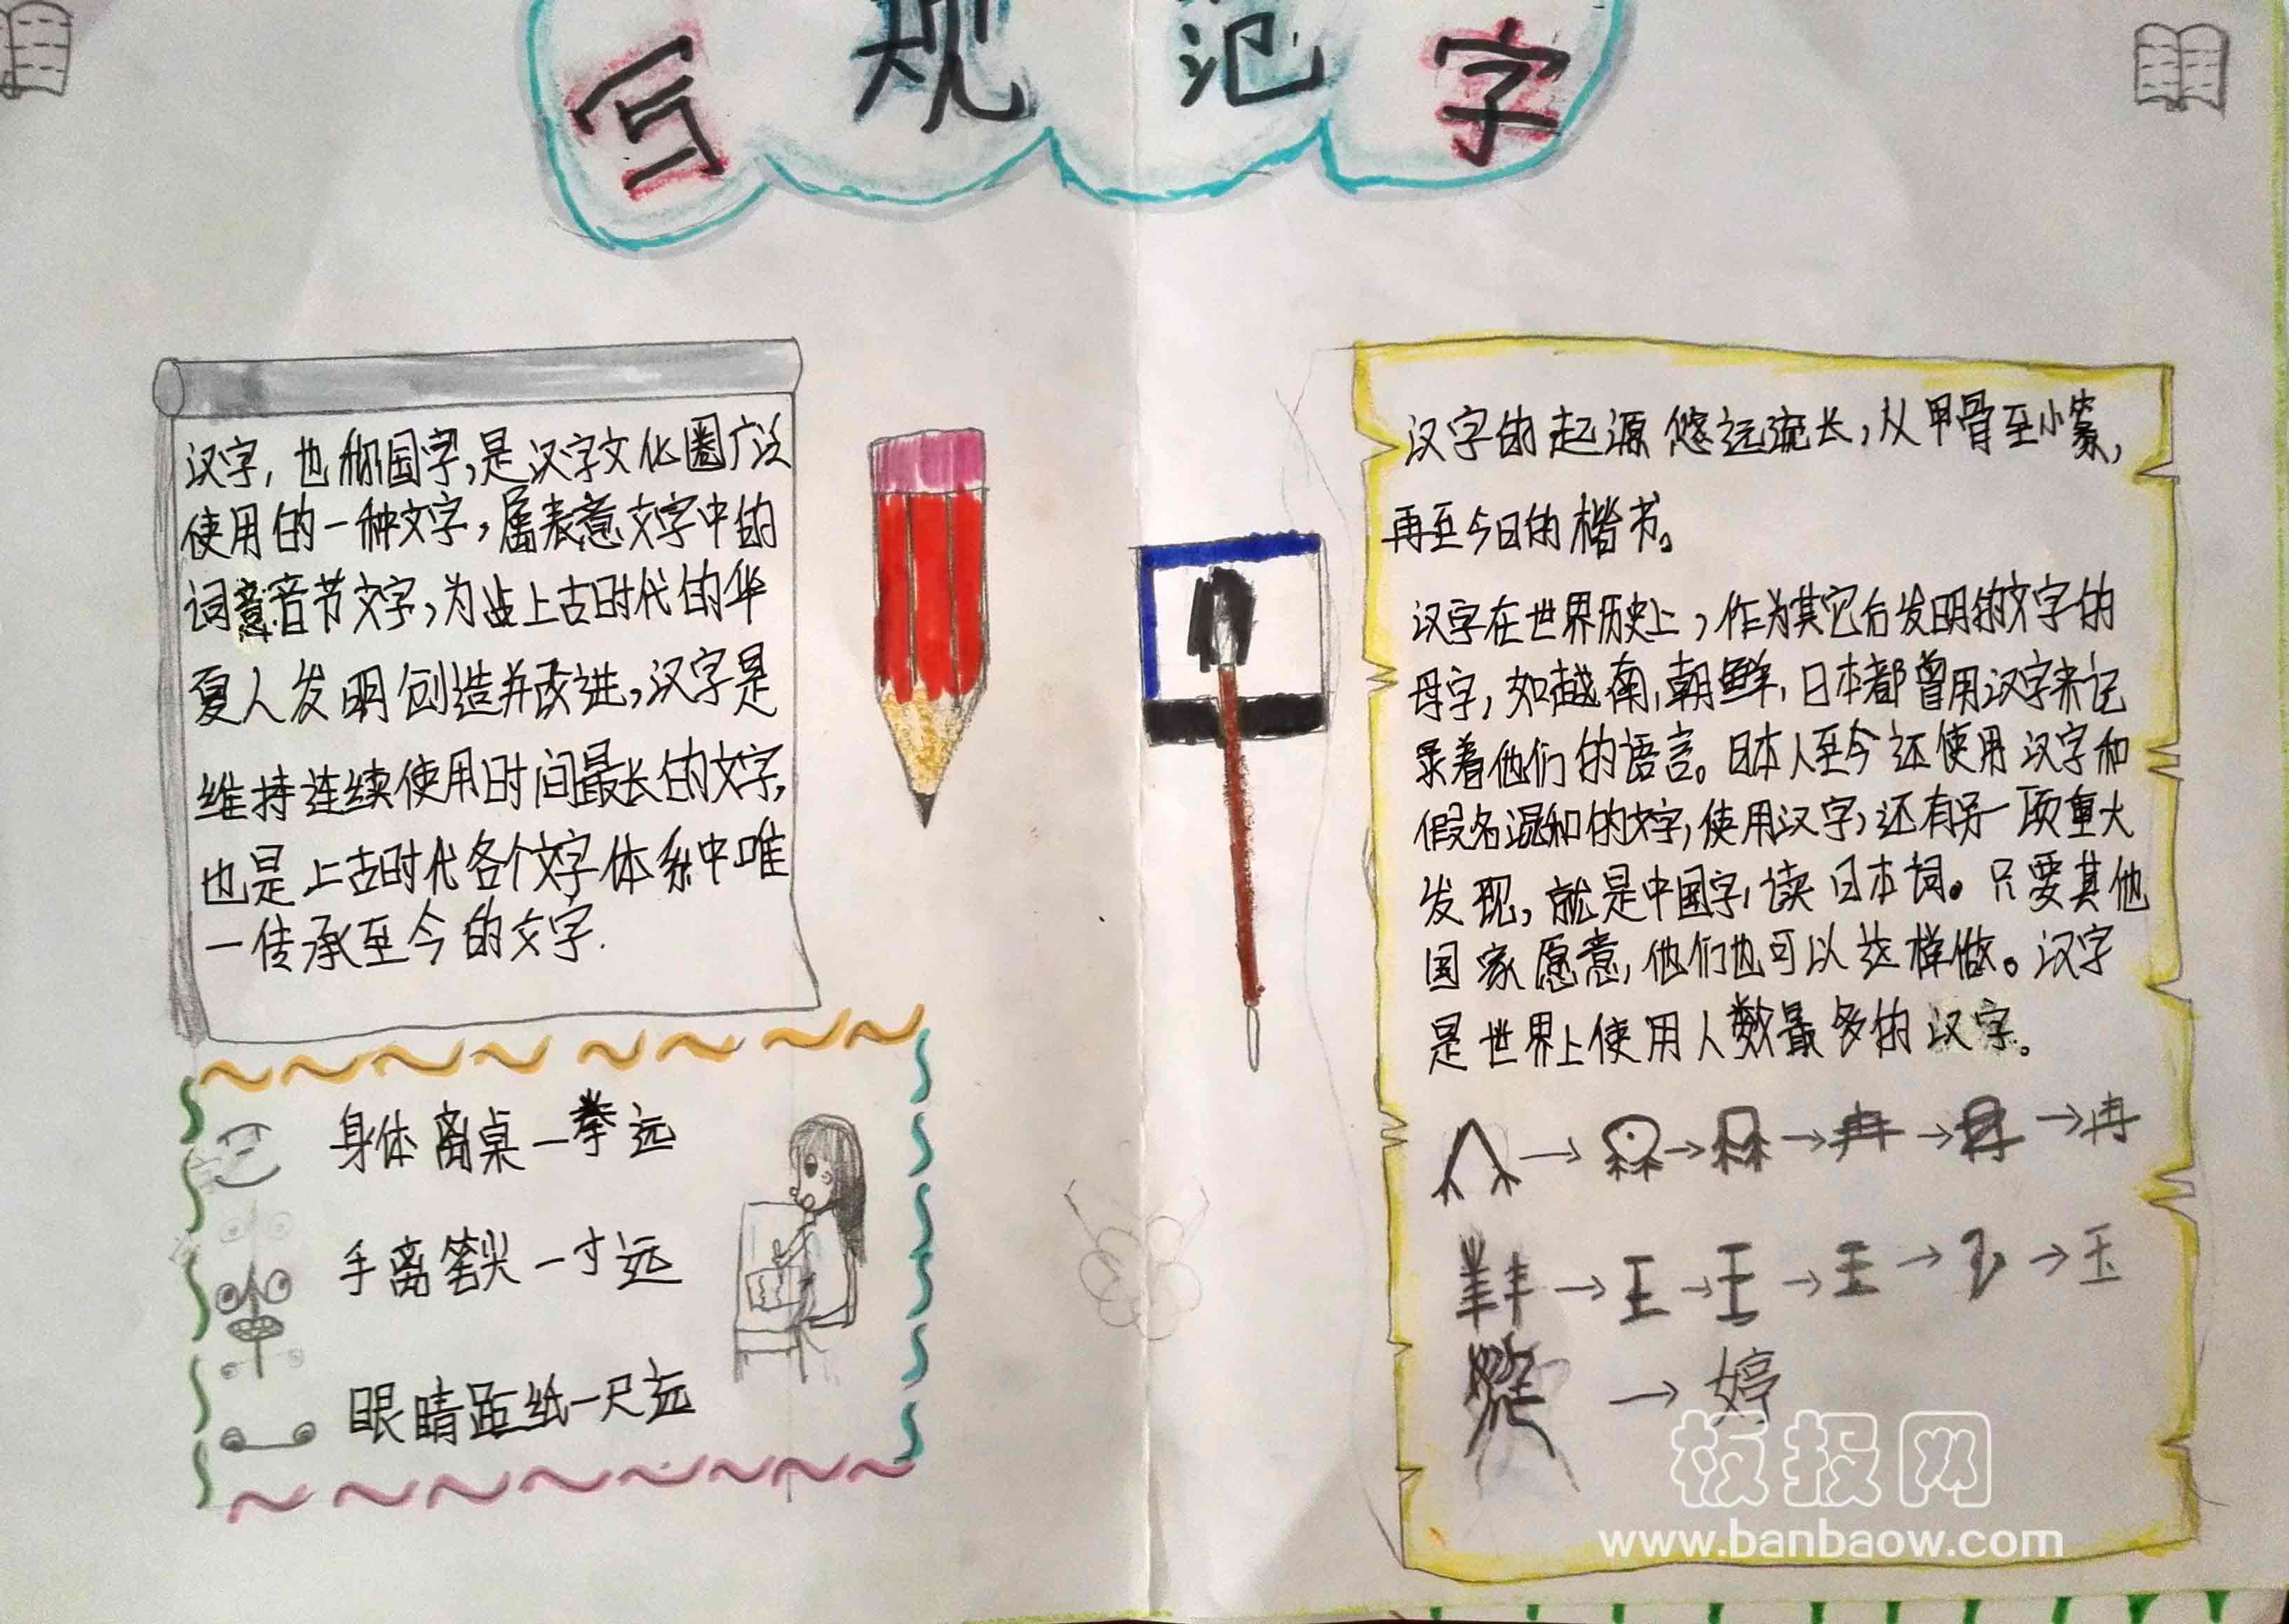 写规范字
汉字,也称国字,是汉字文化圈广泛
使用的一种文字,属表意文字中的
词意音节文字,为上古时代的华
夏人发明创造并改进,汉字是
维持连续使用时间最长的文字,
也是上古时代各个文字体系中唯
一传承至今的文字.
身体离桌一拳远
手离笔尖一寸远
眼睛距纸一尺远
汉字的起源悠远流长,从甲骨至小篆,
再至今日的楷书。
汉字在世界历史上,作为其它后发明的文字的
母字,如越南,朝鲜,日本都曾用汉字来记
录着他们的语言。日本人至今还使用汉字和
假名混和的文字,使用汉字,还有另一项重大
发现,就是中国字,读日本词。只要其他
国家愿意,他们也可以这样做。汉字
是世界上使用人数最多的汉字。
→ → → → → 冉
→ 王 → 王 → 王 → → 玉
→ 婷
板报网
www.banbaow.com